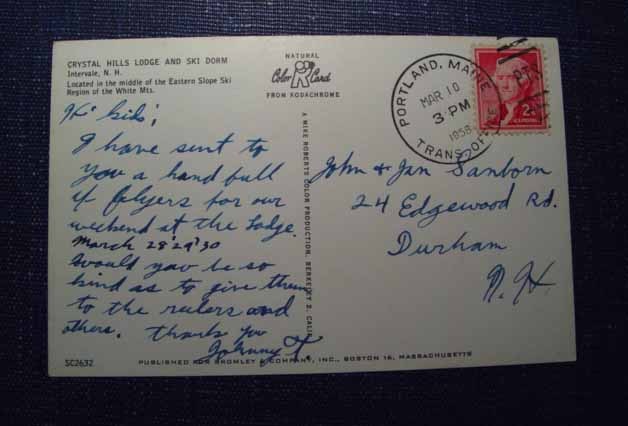 CRYSTAL HILLS LODGE AND SKI DORM
Intervale, N. H.
Located in the middle of the Eastern Slope Ski
Region of the White Mts.
NATURAL
Color Card
FROM KODACHROME
Hi' kids',
I have sent to
you a hand full
of folyers for our
weekend at the Lodge.
March 28'29'30
Would you be so
kind as to give them
to the rulers and
others. Thank you
Johnny T.
A MIKE ROBERTS COLOR PRODUCTION, BERKELEY 2, CALIF.
PORTLAND, MAINE
MAR 10
3 PM
1958
TRANS. OFFICE
2¢
John & Jan Sanborn
24 Edgewood Rd.
Durham
N. H.
SC2632
PUBLISHED FOR BROMLEY & COMPANY, INC., BOSTON 16, MASSACHUSETTS